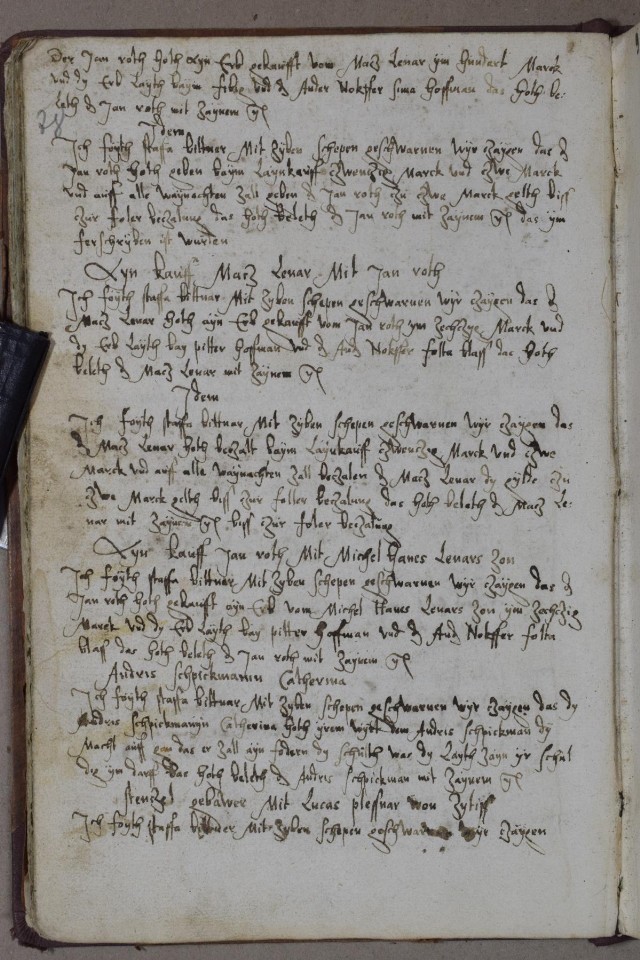 Der Jan roth hoth ayn Erb gekaufft vom Macz Lenar ym hundert Marck
vnd dy Erb layth baym vnd d Ander Nokffer sima hoffman das hoth be:
leth d Jan roth mit zaynem g
28
Idem
Ich foyth staffa bittner Mit zyben schepen geschwarnen wyr czaygen das d
Jan roth hoth geben baym Laynkauff czwenczig Marck vnd czwe Marck
vnd auff alle waynachten zall geben d Jan roth czu czwe Marck gelth biss
czur foler beczalung das hoth beleth d Jan roth mit zaynem g das ym
ferschryben ist wurden
Ayn kauff Macz Lenar Mit Jan roth
Ich foyth staffa bittnar Mit zyben schepen geschwarnen wyr czaygen das d
Macz Lenar hoth ayn Erb gekaufft vom Jan roth ym zechczig Marck vnd
dy Erb layth bay pitter hoffman vnd d And Nokffer folta blass das hoth
beleth d Macz Lenar mit zaynem g
Idem
Ich foyth staffa bittnar Mit zyben schepen geschwarnen wyr czaygen das
d Macz Lenar hoth beczalt baym Laynkauff czwenczig Marck vnd czwe
Marck vnd auff alle waynachten zall beczalen d Macz Lenar dy gylde czu
zwe Marck gelth biss czur foller beczalung das hoth beleth d Macz Le:
nar mit zaynem g biss czur foler beczalung
Ayn kauff Jan roth Mit Michel Hanes Lenars zon
Ich foyth staffa bittner Mit zyben schepen geschwarnen wyr czaygen das d
Jan roth hoth gekaufft ayn Erb vom Michel Hanes Lenars zon ym zechczig
Marck vnd dy Erb layth bay pitter hoffman vnd d And Nokffer folta
blass das hoth beleth d Jan roth mit zaynem g
Andris Schpickmann Catherina
Ich foyth staffa bittnar Mit zyben schepen geschwarnen wyr czaygen das dy
Andris Schpickmanyn Catherina hoth yrem wybt dem Andris schpickman dy
Macht auff das er zall ayn fodern dy schulth was dy Layth zayn yr schul
dig ym darff das hoth beleth d Andris Schpickman mit zaynem g
stenczel gebawer Mit Lucas plessnar von Zytiss
Ich foyth staffa bittner Mit zyben schepen geschwarnen wyr czaygen